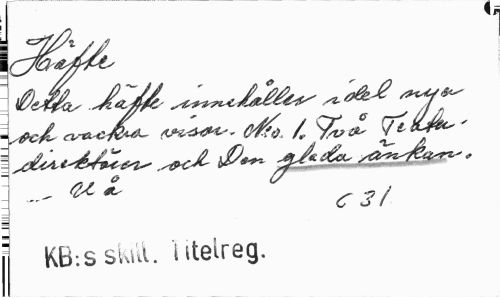 Häfte
Detta häfte innehåller idel nya
och vackra visor. N:o. 1. Två Teater-
direktörer och Den glada änkan.
... U å
C 31
KB:s skill. Titelreg.